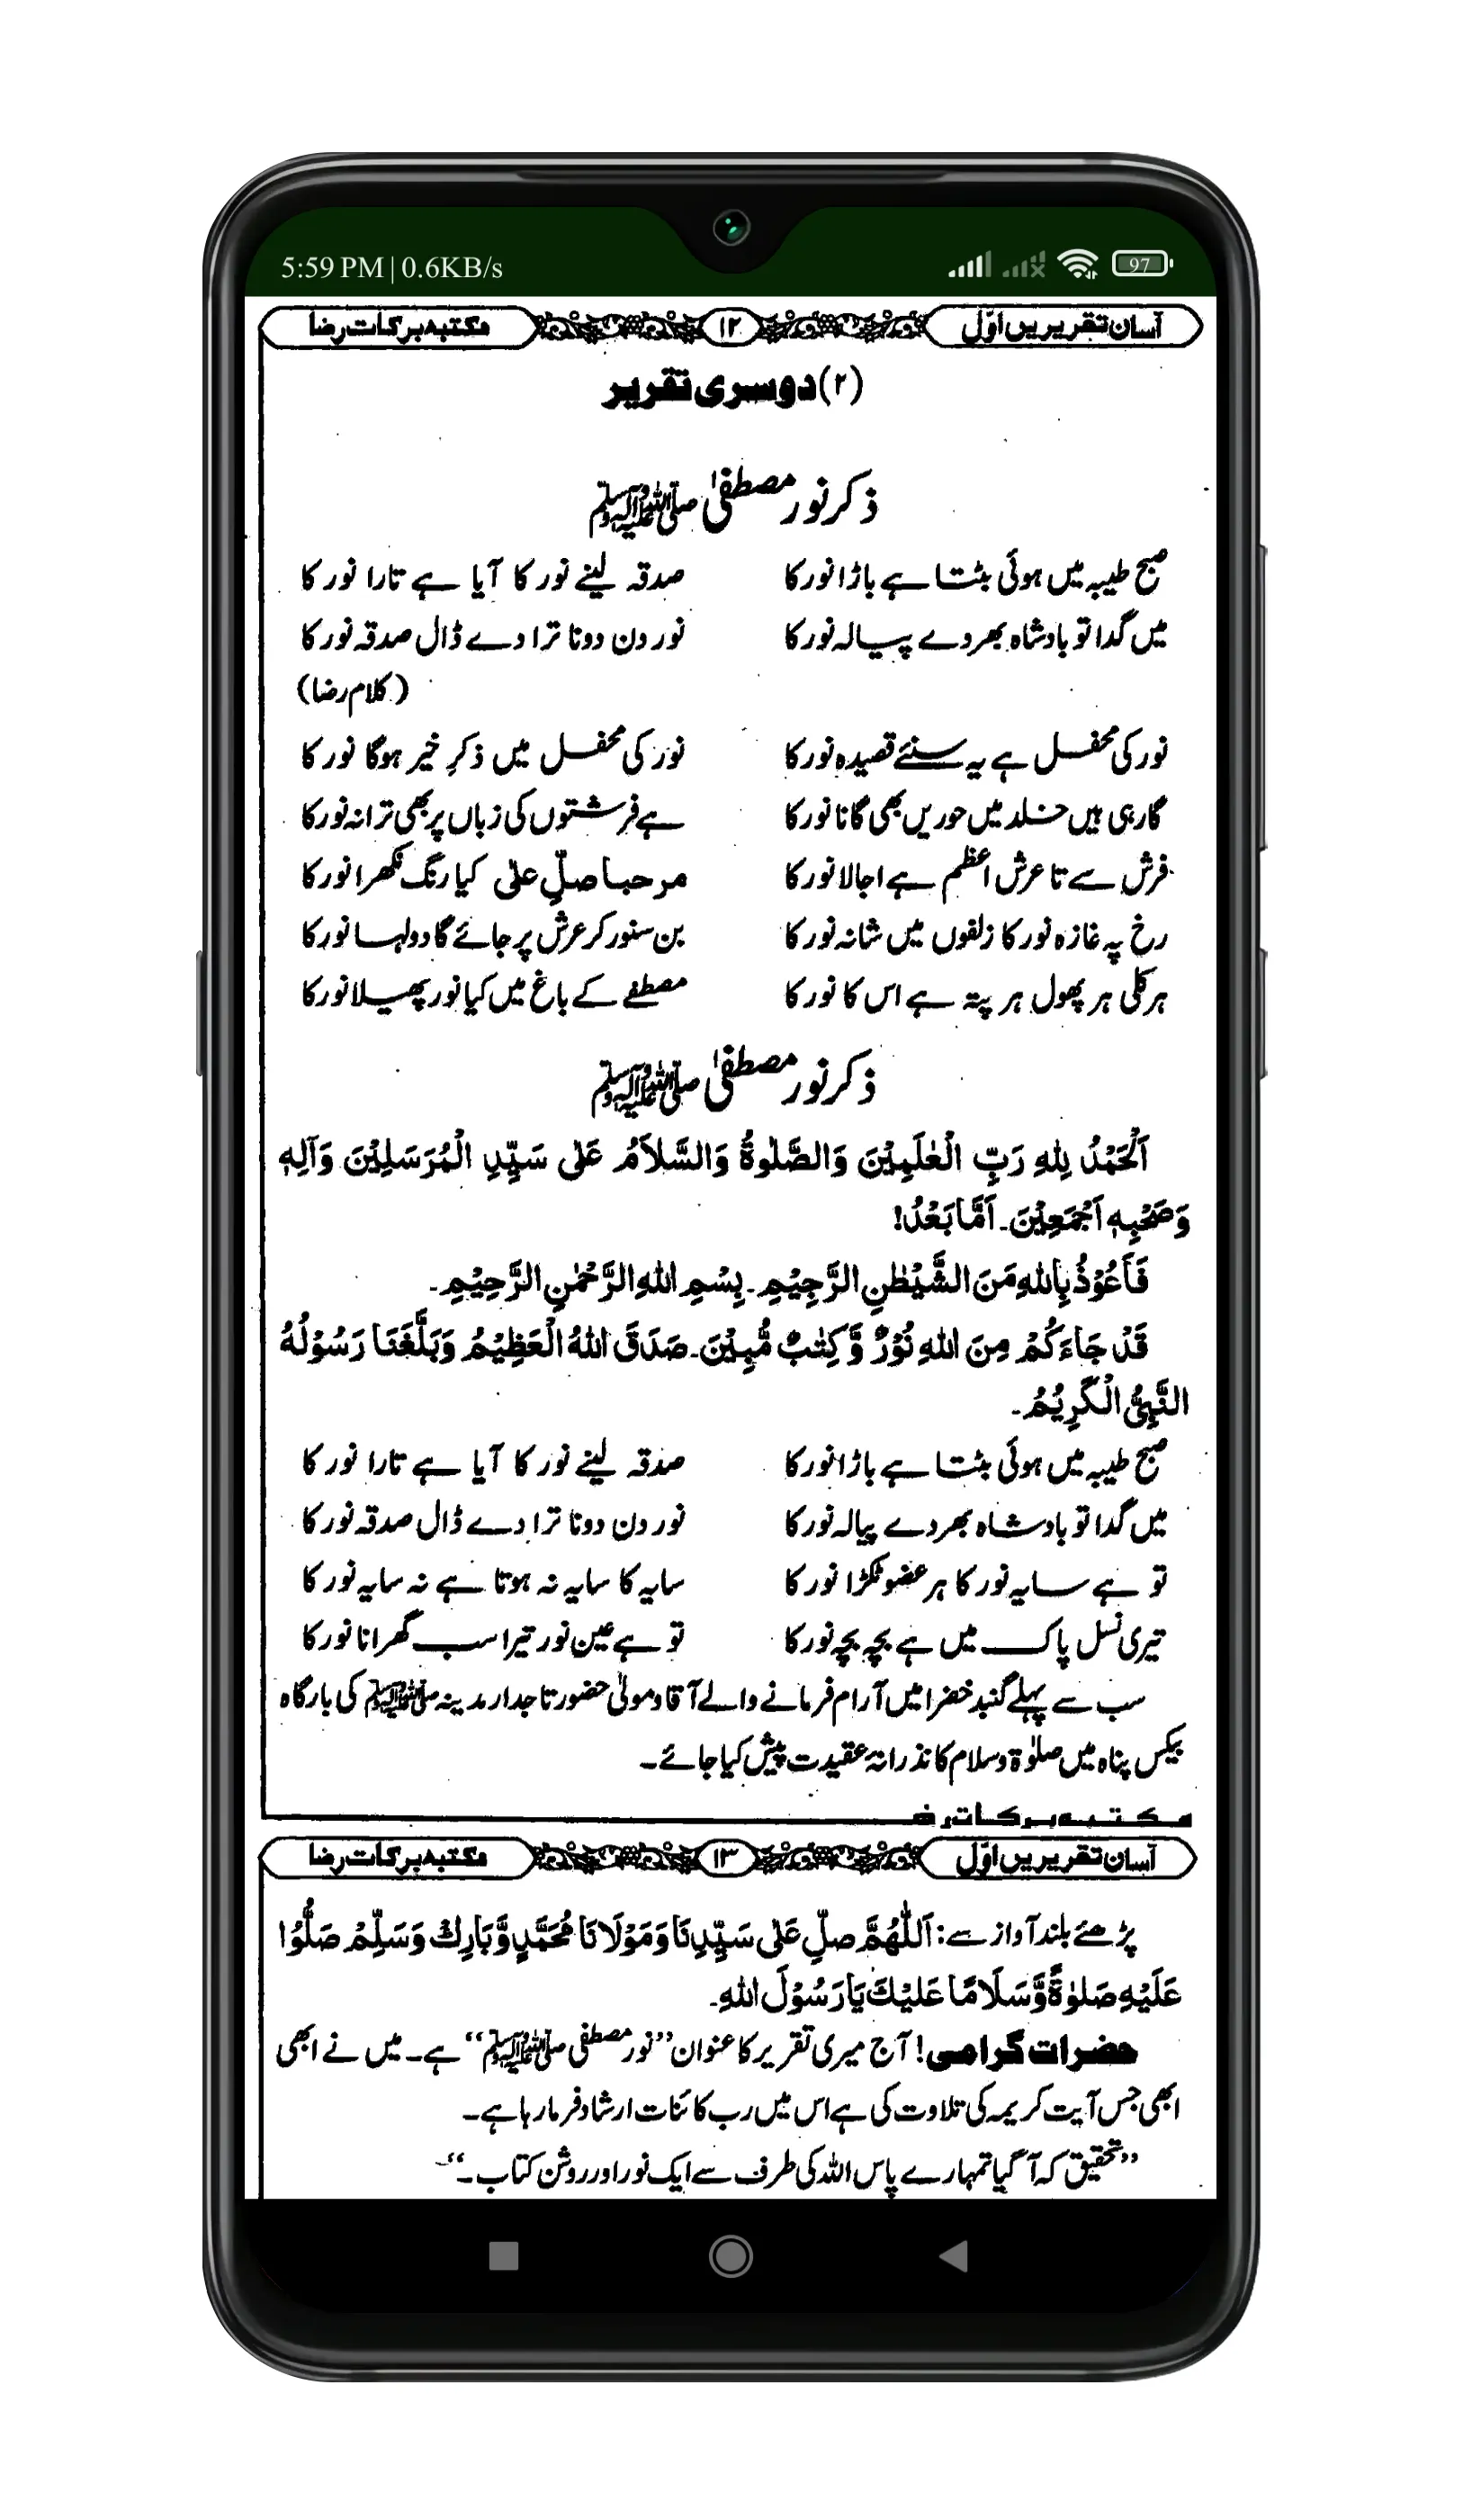 5:59 PM | 0.6KB/s
97
آسان تقریریں اوّل ۱۲ مکتبہ برکات رضا
(۲) دوسری تقریر
ذکر نور مصطفیٰ ﷺ
صبح طیبہ میں ہوئی بٹتا ہے باڑا نور کا صدقہ لینے نور کا آیا ہے تارا نور کا
میں گدا تو بادشاہ بھر دے پیالہ نور کا نور دن دونا ترا دے ڈال صدقہ نور کا
(کلام رضا)
نور کی محفل ہے یہ سنئے قصیدہ نور کا نور کی محفل میں ذکرِ خیر ہوگا نور کا
گارہی ہیں خلد میں حوریں بھی گانا نور کا ہے فرشتوں کی زباں پر بھی ترانہ نور کا
فرش سے تا عرش اعظم ہے اجالا نور کا مرحبا صلِّ علیٰ کیا رنگ نکھرا نور کا
رخ پہ غازہ نور کا زلفوں میں شانہ نور کا بن سنور کر عرش پر جائے گا دولہا نور کا
ہر کلی ہر پھول ہر پتہ ہے اس کا نور کا مصطفےٰ کے باغ میں کیا نور پھیلا نور کا
ذکر نور مصطفیٰ ﷺ
اَلْحَمْدُ لِلّٰهِ رَبِّ الْعٰلَمِيْنَ وَالصَّلٰوةُ وَالسَّلاَمُ عَلٰى سَيِّدِ الْمُرَسَلِيْنَ وَآلِهٖ
وَصَحْبِهٖ اَجْمَعِيْنَ۔ اَمَّا بَعْدُ!
فَاَعُوْذُ بِاللهِ مَنَ الشَّيْطٰنِ الرَّجِيْمِ۔ بِسْمِ اللهِ الرَّحْمٰنِ الرَّحِيْمِ۔
قَدْ جَاءَكُمْ مِنَ اللهِ نُوْرٌ وَّكِتٰبٌ مُّبِيْنَ۔ صَدَقَ اللهُ الْعَظِيْمُ وَبَلَّغَنَا رَسُوْلُهُ
النَّبِيُّ الْكَرِيْمُ۔
صبح طیبہ میں ہوئی بٹتا ہے باڑا نور کا صدقہ لینے نور کا آیا ہے تارا نور کا
میں گدا تو بادشاہ بھر دے پیالہ نور کا نور دن دونا ترا دے ڈال صدقہ نور کا
تو ہے سایہ نور کا ہر عضو ٹکڑا نور کا سایہ کا سایہ نہ ہوتا ہے نہ سایہ نور کا
تیری نسل پاک میں ہے بچہ بچہ نور کا تو ہے عین نور تیرا سب گھرانا نور کا
سب سے پہلے گنبد خضرا میں آرام فرمانے والے آقا و مولیٰ حضور تاجدار مدینہ ﷺ کی بارگاہ
بیکس پناہ میں صلوٰۃ وسلام کا نذرانہ عقیدت پیش کیا جائے۔
مکتبہ برکات رضا
آسان تقریریں اوّل ۱۳ مکتبہ برکات رضا
پڑھئے بلند آواز سے: اَللّٰهُمَّ صلِّ عَلٰى سَيِّدِنَا وَمَوْلَانَا مُحَمَّدٍ وَّبَارِكْ وَسَلِّمْ صَلُّوْا
عَلَيْهِ صَلٰوةً وَّسَلَامًا عَلَيْكَ يَا رَسُوْلَ اللهِ۔
حضرات گرامی! آج میری تقریر کا عنوان ”نور مصطفی ﷺ“ ہے۔ میں نے ابھی
ابھی جس آیت کریمہ کی تلاوت کی ہے اس میں رب کائنات ارشاد فرمارہا ہے۔
”تحقیق کہ آگیا تمہارے پاس اللہ کی طرف سے ایک نور اور روشن کتاب۔“